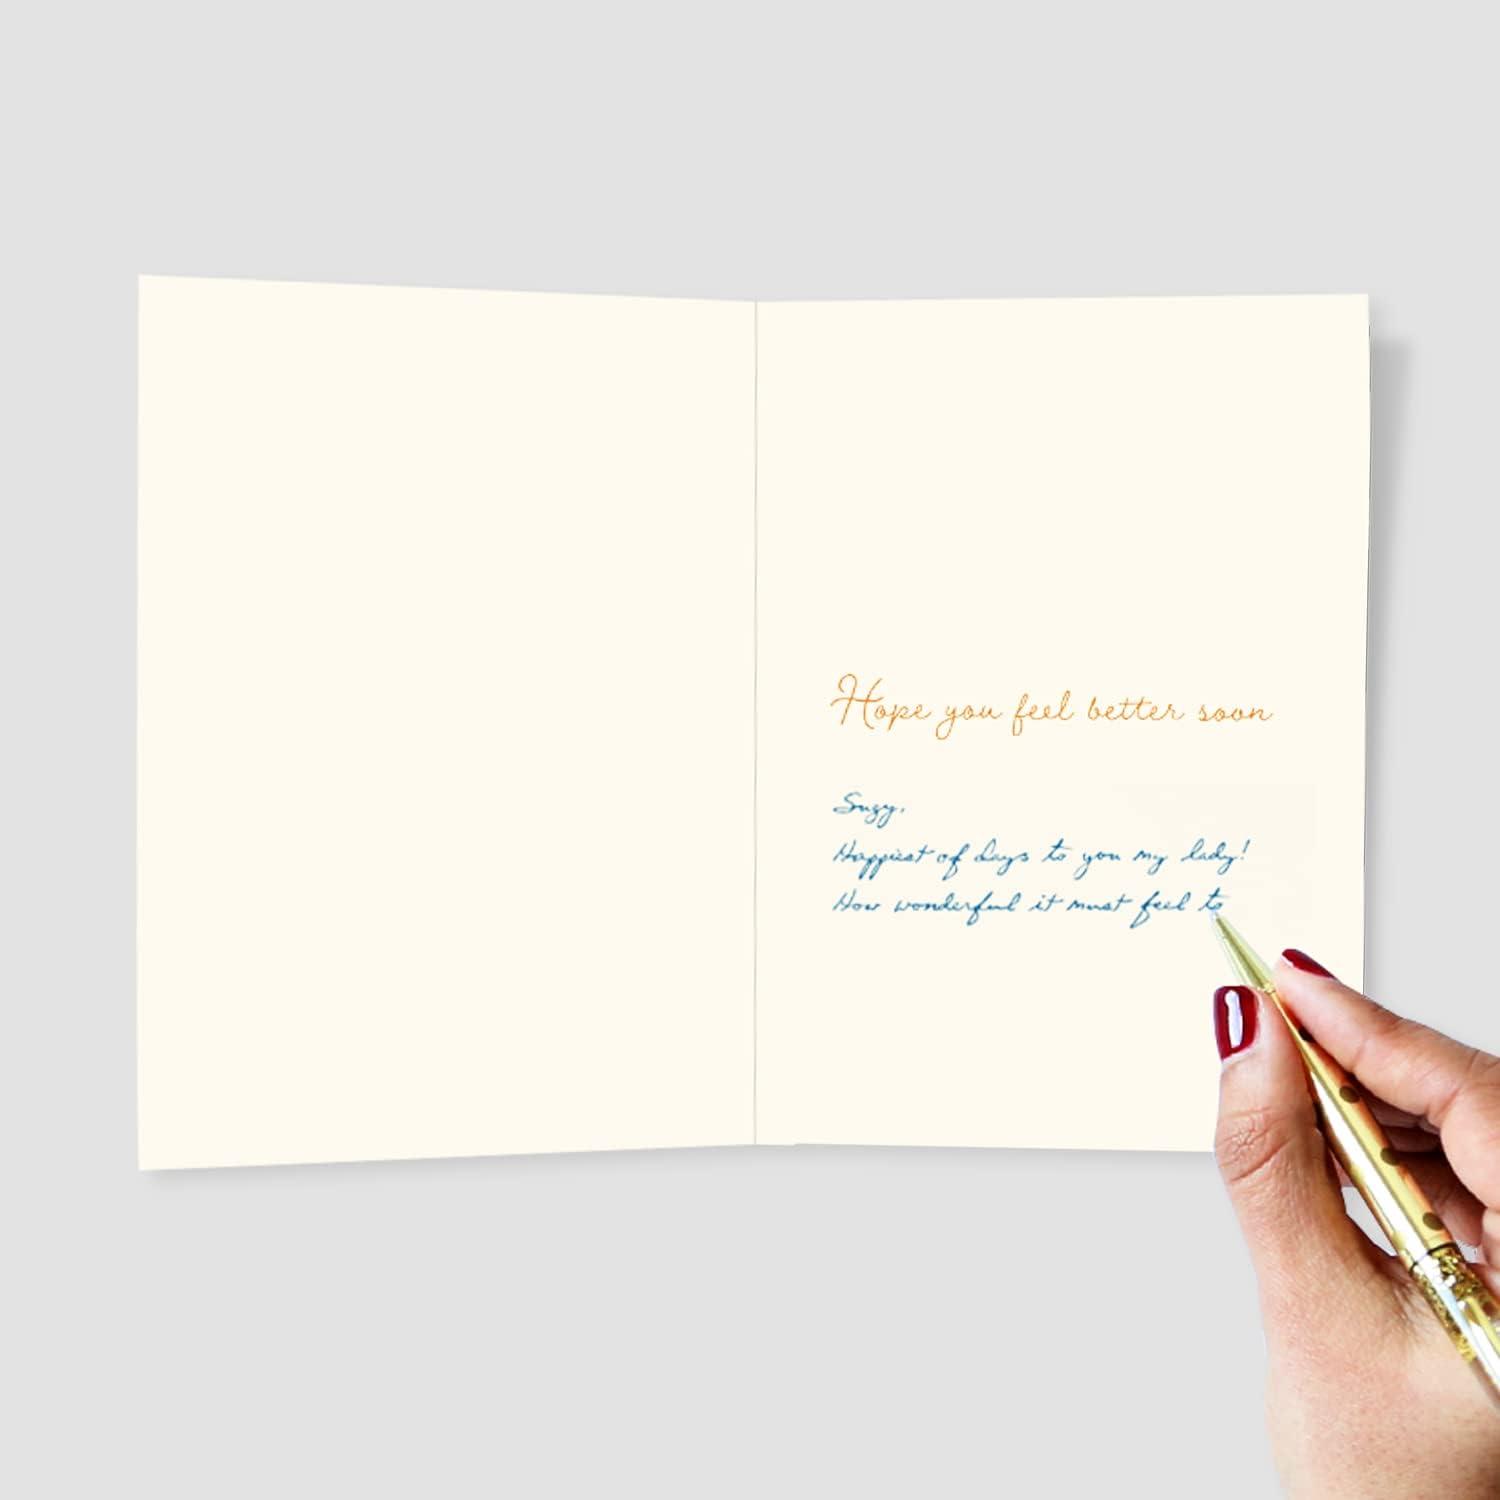 Hope you feel better soon
Suzy,
Happiest of days to you my lady!
How wonderful it must feel to